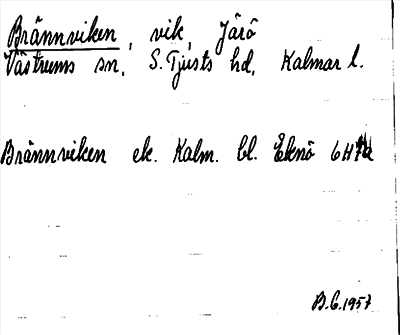 Brännviken, vik, Järö
Västrums sn, S. Tjusts hd, Kalmar l.
Brännviken ek. Kalm. bl. Eknö 6H
B.G. 1957